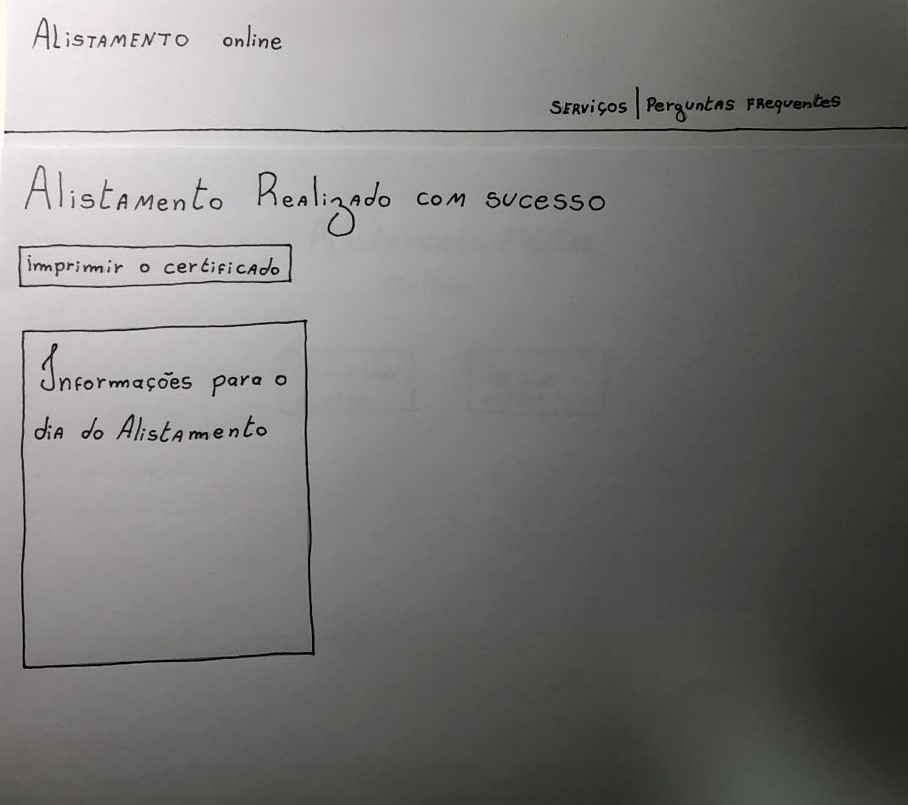 Alistamento online
Serviços | Perguntas Frequentes
Alistamento Realizado com sucesso
imprimir o certificado
Informações para o
dia do Alistamento